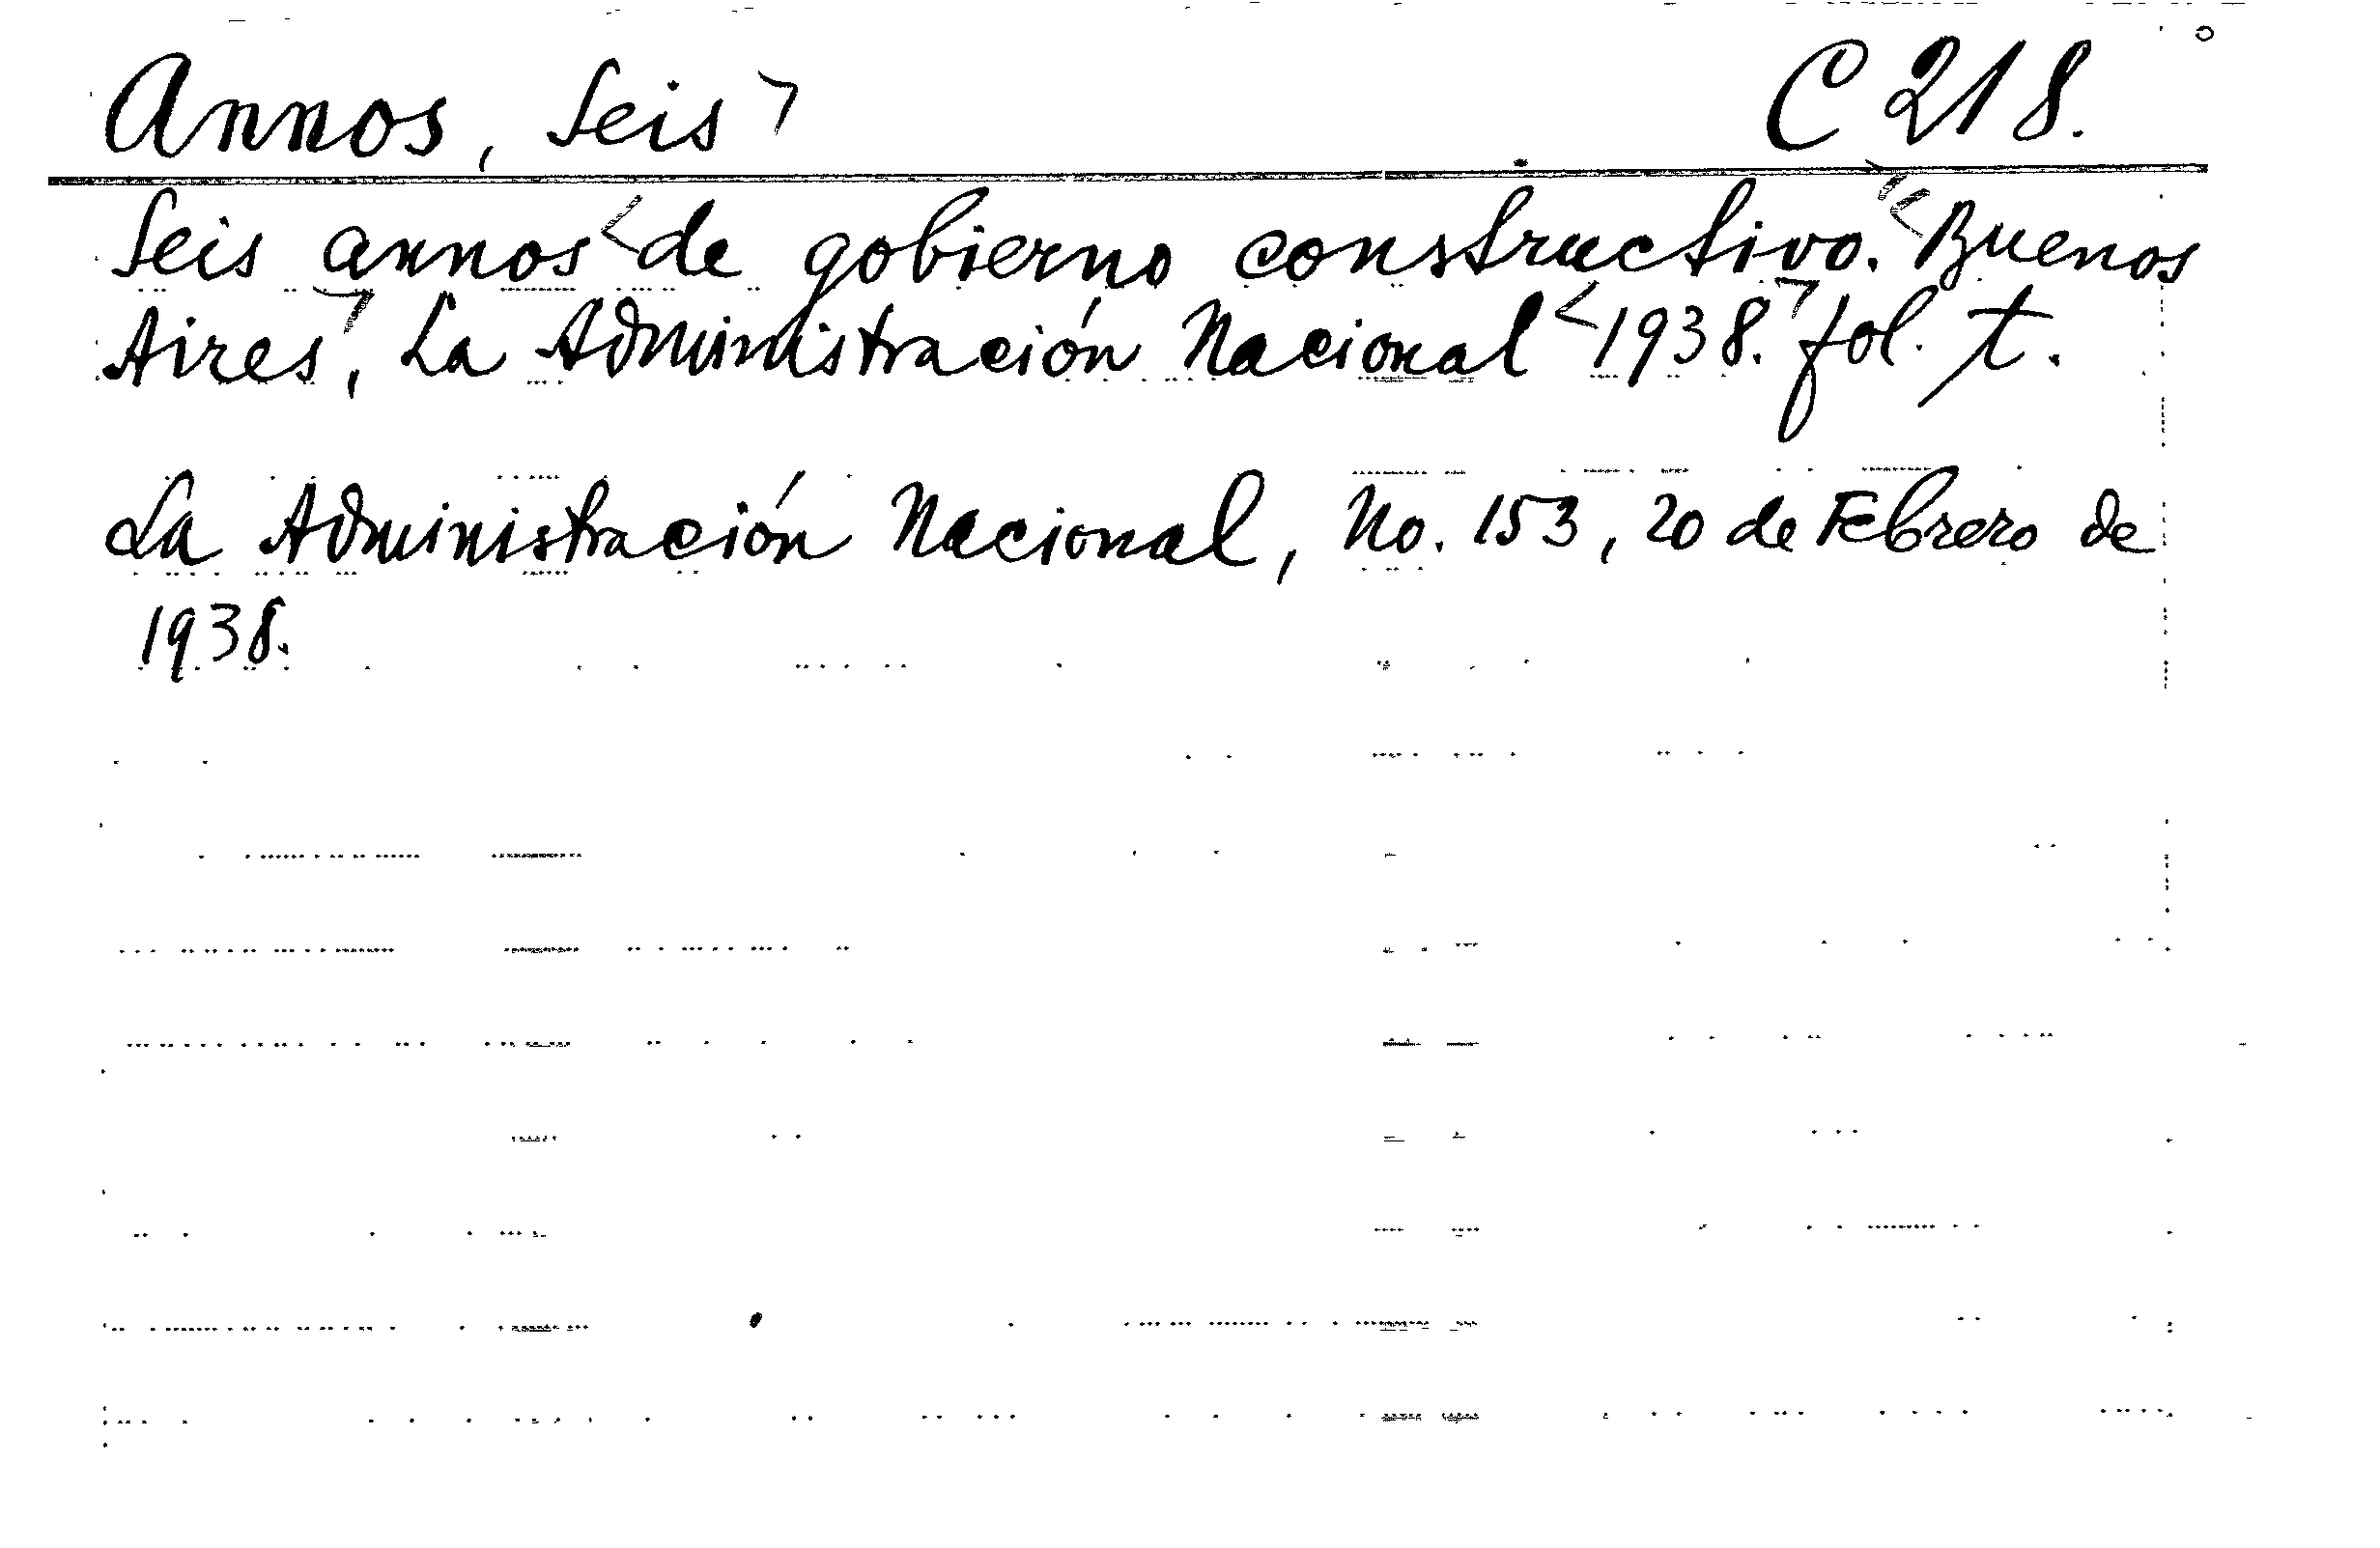 Annos, Seis C 218.
Seis annos de gobierno constructivo. Buenos
Aires, La Administración Nacional 1938. fol. t.
La Administración Nacional, No. 153, 20 de Febrero de
1938.